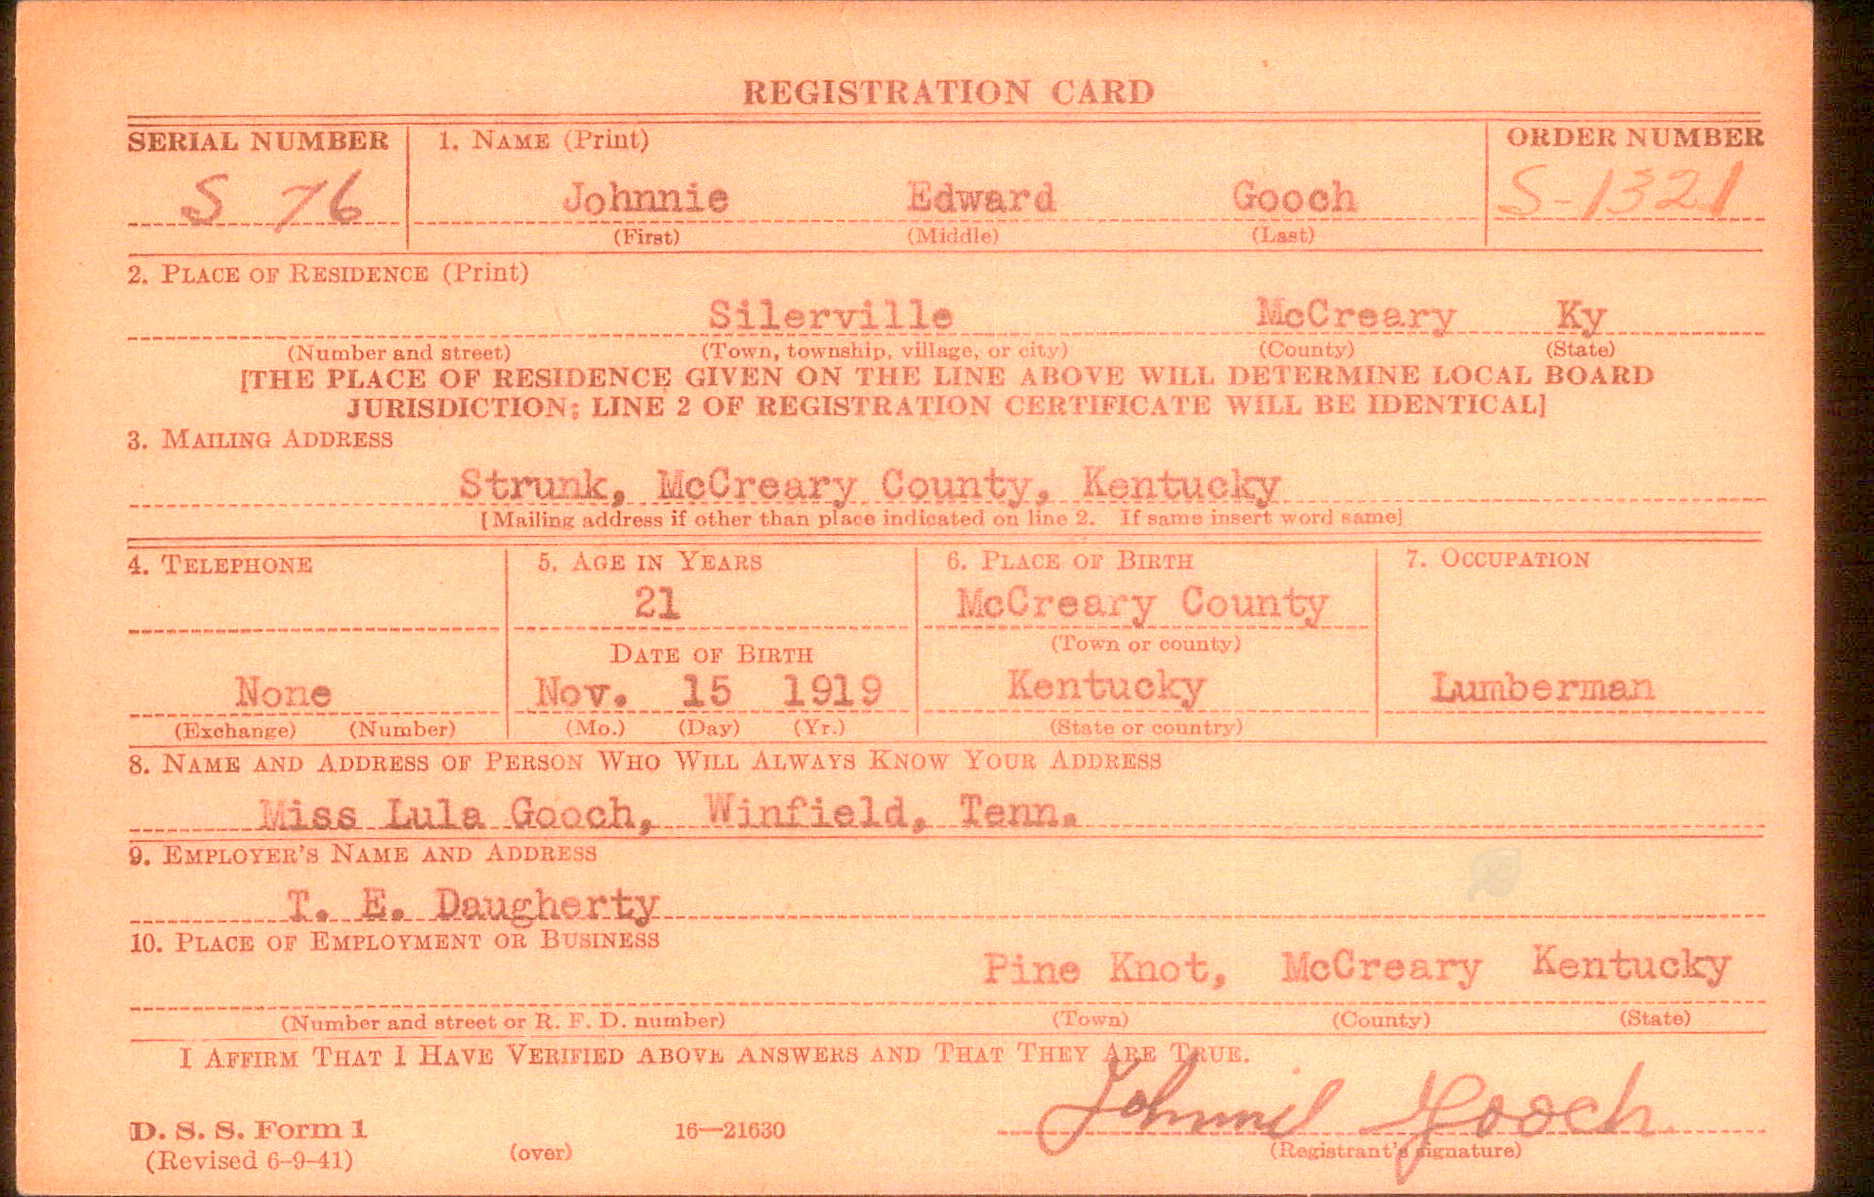 REGISTRATION CARD
SERIAL NUMBER 1. NAME (Print) ORDER NUMBER
S 76 Johnnie Edward Gooch S-1321
(First) (Middle) (Last)
2. PLACE OF RESIDENCE (Print)
Silerville McCreary Ky
(Number and street) (Town, township, village, or city) (County) (State)
[THE PLACE OF RESIDENCE GIVEN ON THE LINE ABOVE WILL DETERMINE LOCAL BOARD
JURISDICTION; LINE 2 OF REGISTRATION CERTIFICATE WILL BE IDENTICAL]
3. MAILING ADDRESS
Strunk, McCreary County, Kentucky
[Mailing address if other than place indicated on line 2. If same insert word same]
4. TELEPHONE 5. AGE IN YEARS 6. PLACE OF BIRTH 7. OCCUPATION
21 McCreary County
DATE OF BIRTH (Town or county)
None Nov. 15 1919 Kentucky Lumberman
(Exchange) (Number) (Mo.) (Day) (Yr.) (State or country)
8. NAME AND ADDRESS OF PERSON WHO WILL ALWAYS KNOW YOUR ADDRESS
Miss Lula Gooch, Winfield, Tenn.
9. EMPLOYER'S NAME AND ADDRESS
T. E. Daugherty
10. PLACE OF EMPLOYMENT OR BUSINESS
Pine Knot, McCreary Kentucky
(Number and street or R. F. D. number) (Town) (County) (State)
I AFFIRM THAT I HAVE VERIFIED ABOVE ANSWERS AND THAT THEY ARE TRUE.
Johnnie Gooch
D. S. S. Form 1 16—21630
(Revised 6-9-41) (over) (Registrant's signature)